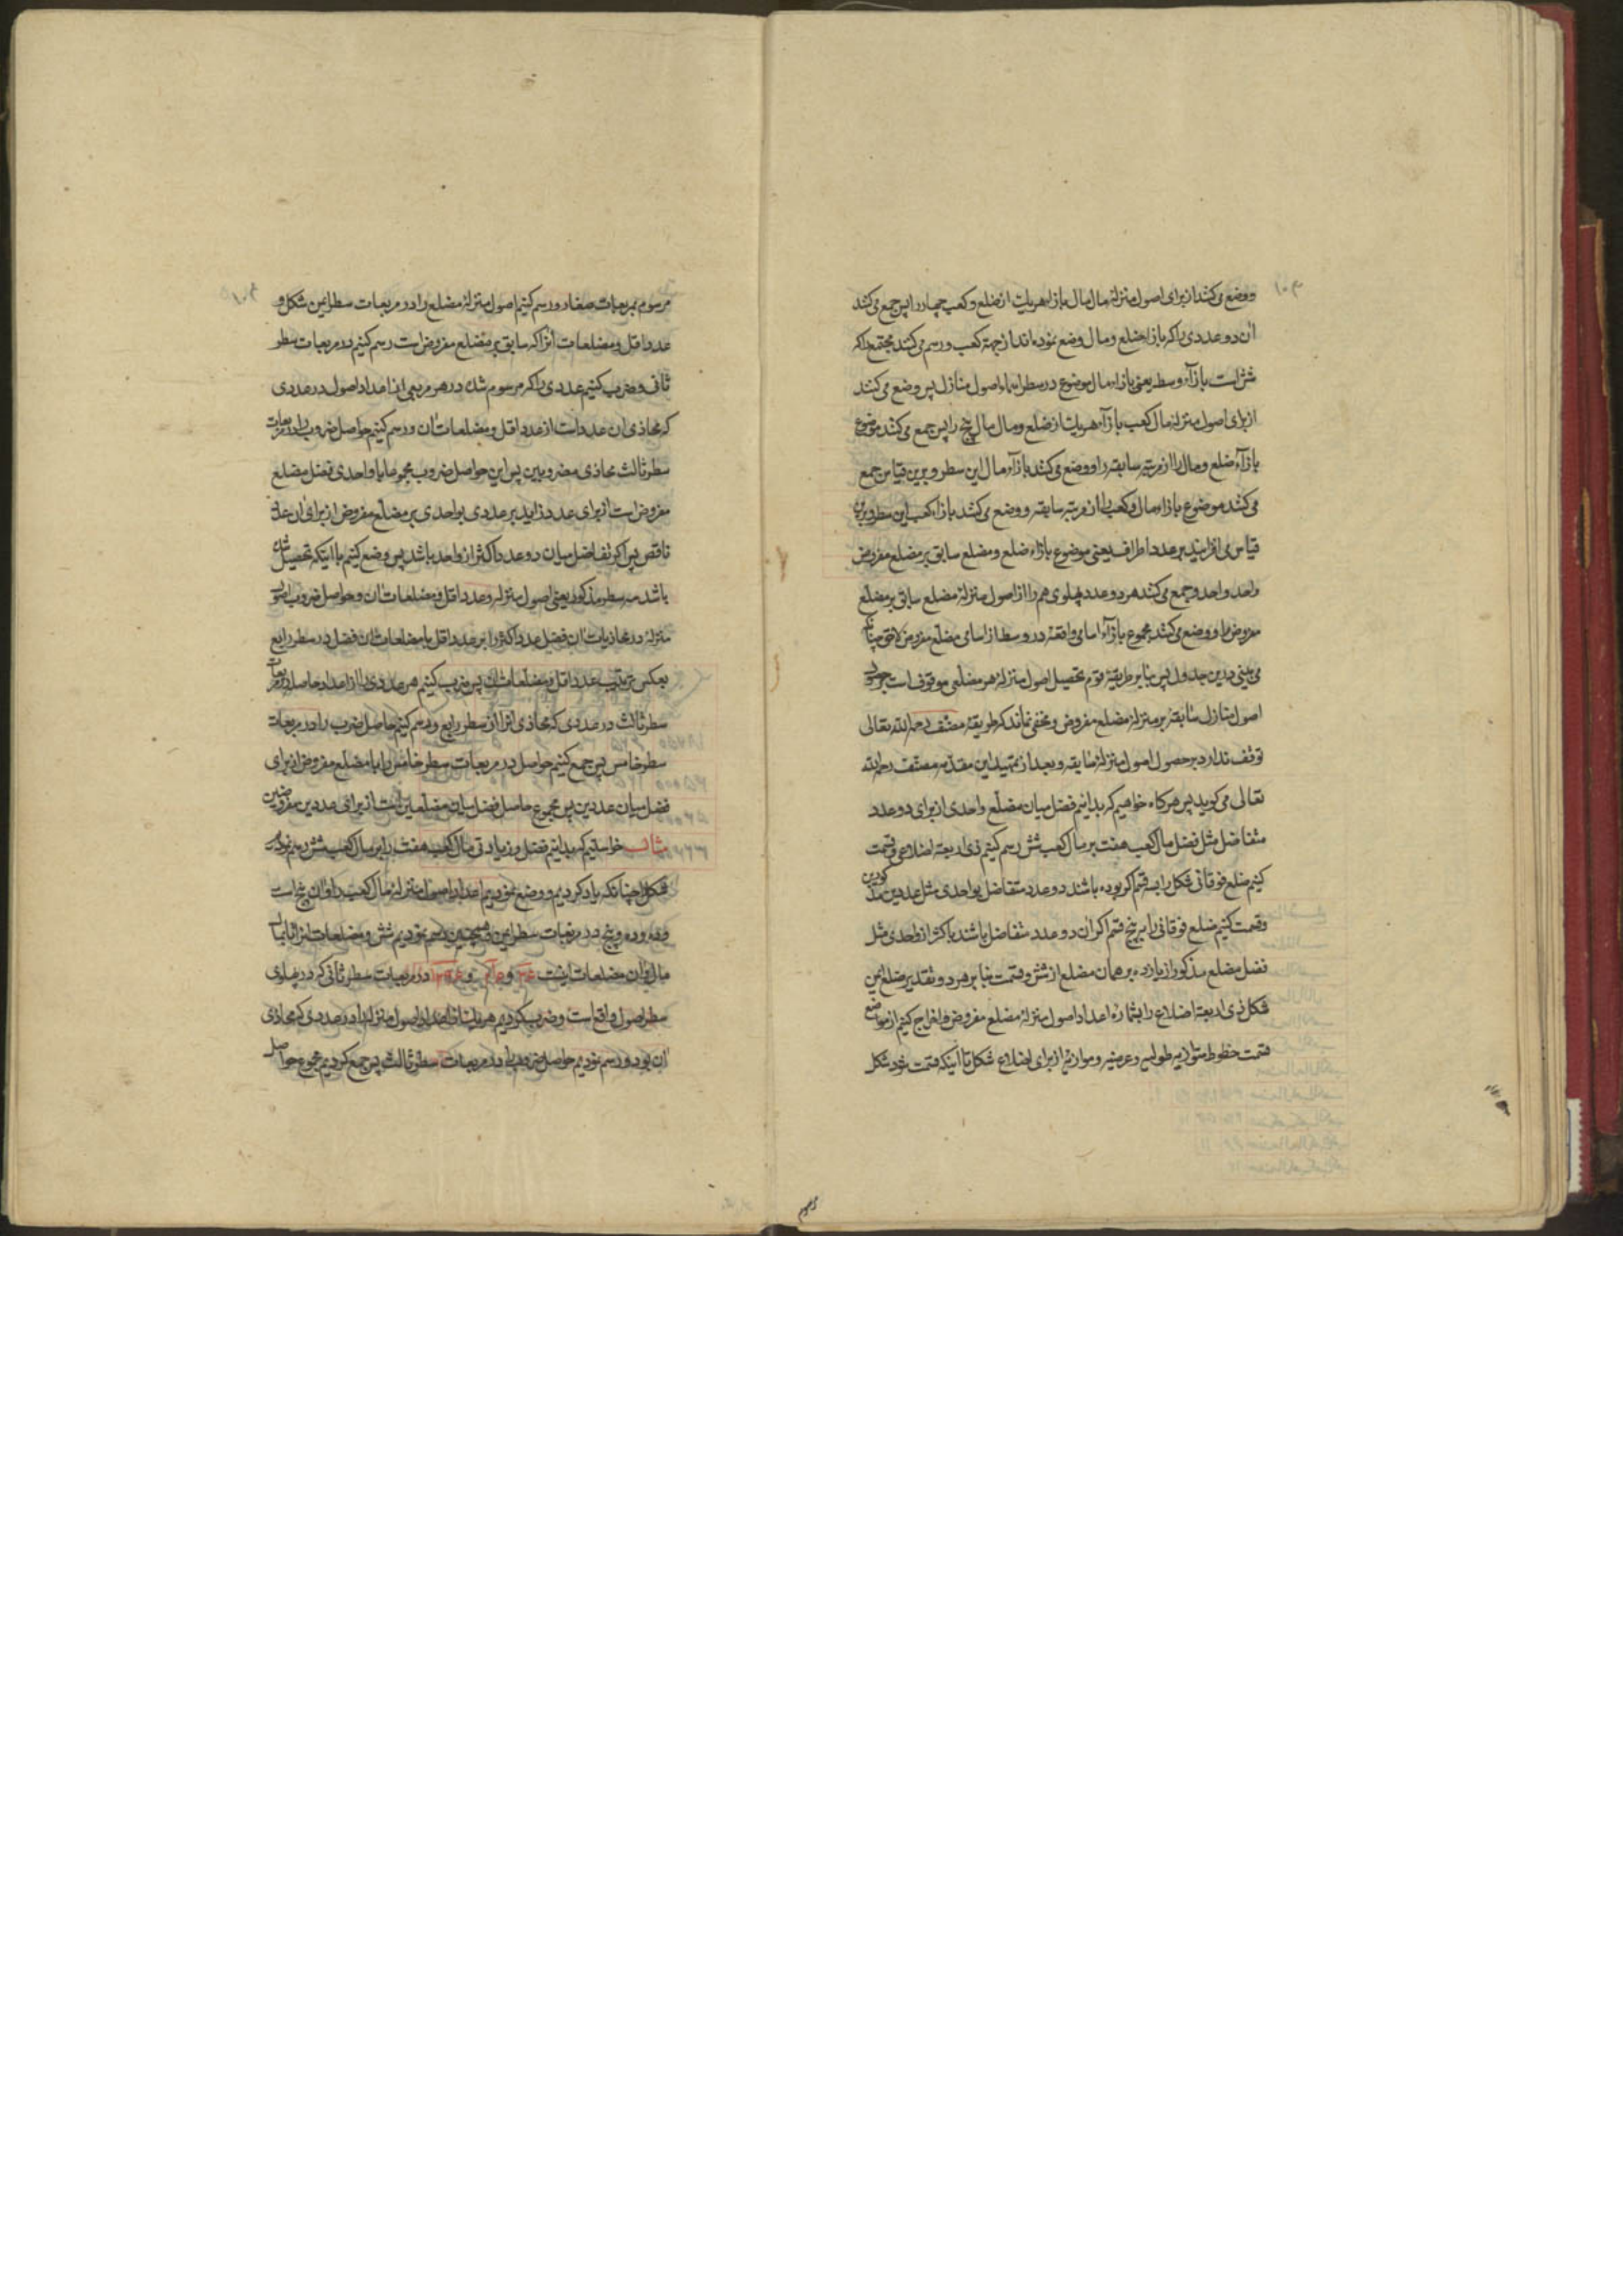 ووضع می‌کنند از برای اصول منزلهٔ مال مال بازاء هریک از ضلع و کعب چهار را پس جمع می‌کنند
آن دو عددی را که بازاء ضلع و مال وضع نموده‌اند از جهة کعب و رسم می‌کنند مجتمع را که
شش است بازآء وسط یعنی بازاء مال موضوع در سطر اسماء اصول منازل پس وضع می‌کنند
از برای اصول منزلهٔ مال کعب بازآء هریک از ضلع و مال مال پنج را پس جمع می‌کنند موضوع
بازآء ضلع و مال را از مرتبه سابقه را و وضع می‌کنند بازآء مال این سطر و برین قیاس جمع
می‌کنند موضوع بازاء مال و کعب را از مرتبه سابقه و وضع می‌کنند بازاء کعب این سطر و برین
قیاس می‌افزایند بر عدد اطراف یعنی موضوع بازاء ضلع و مضلع سابق بر مضلع مفروض
واحد واحد و جمع می‌کنند هر دو عدد پهلوی هم را از اصول منزلهٔ مضلع سابق بر مضلع
مفروض را و وضع می‌کنند مجموع بازآء اسامی واقعهٔ در وسط از اسامی مضلع مفروض لاحق چنانکه
می‌بینی درین جدول پس بنابر طریقهٔ قوم تحصیل اصول منزلهٔ هر مضلعی موقوف است بر حصول
اصول منازل سابقهٔ بر منزلهٔ مضلع مفروض و مخفی نماند که طریقهٔ مصنف رحمه الله تعالی
توقف ندارد بر حصول اصول منزلهٔ سابقه و بعد از تمهید این مقدمه مصنف رحمه الله
تعالی می‌گوید پس هرگاه خواهیم که بدانیم فضل میان مضلع واحدی از برای دو عدد
متفاضل مثل فضل مال کعب هفت بر مال کعب شش رسم کنیم ذی اربعة اضلاعی و قسمت
کنیم ضلع فوقانی شکل را به قسم اگر بوده باشند دو عدد متفاضل بواحدی مثل عددین مذکورین
و قسمت کنیم ضلع فوقانی را بر پنج قسم اگر آن دو عدد متفاضل باشند باکثر از واحدی مثل
فضل مضلع مذکور از یازده بر همان مضلع از شش و قسمت بنابر هر دو تقدیر ضلع ایمن
شکل ذی اربعة اضلاع را بشمارهٔ اعداد اصول منزلهٔ مضلع مفروض و اخراج کنیم از مواضع
قسمت خطوط متوازیه طولیه و عرضیه و موازیهٔ از برای اضلاع شکل تا اینکه قسمت شود شکل
مرسوم
مرسوم بمربعات صغار و رسم کنیم اصول منزلهٔ مضلع را در مربعات سطر ایمن شکل و
عدد اقل و مضلعات آنرا که سابق بر مضلع مفروض است رسم کنیم در مربعات سطر
ثانی و ضرب کنیم عددی را که مرسوم شد در هر مربعی از اعداد اصول در عددی
که محاذی آن عدد است از عدد اقل و مضلعات آن و رسم کنیم حواصل ضروب را در مربعات
سطر ثالث محاذی مضروبین پس این حواصل ضروب مجموعا با واحدی فضل مضلع
مفروض است از برای عدد زاید بر عددی بواحدی بر مضلع مفروض از برای آن عدد
ناقص پس اگر تفاضل میان دو عدد اکثر از واحد باشد پس وضع کنیم با اینکه تحصیل شد
باشد سه سطر مذکور یعنی اصول منزله و عدد اقل و مضلعات آن و حواصل ضروب اصول
منزلهٔ در محاذیات آن فضل عدد اکثر را بر عدد اقل با مضلعات آن فضل در سطر رابع
بعکس ترتیب عدد اقل و مضلعات آن پس ضرب کنیم هر عددی را از اعداد حاصله در مربعات
سطر ثالث در عددی که محاذی آنرا از سطر رابع و رسم کنیم حاصل ضرب را در مربعات
سطر خامس پس جمع کنیم حواصل در مربعات سطر خامس را با مضلع مفروض از برای
فضل میان عددین پس مجموع حاصل فضل میان مضلعین است از برای عددین مفروضین
مثاله خواستیم که بدانیم فضل و زیادتی مال کعب هفت را بر مال کعب شش رسم نمودیم
شکل را چنانکه یاد کردیم و وضع نمودیم اعداد اصول منزلهٔ مال کعب را و آن پنج است
و ده و ده و پنج در مربعات سطر ایمن و همچنین رسم نمودیم شش و مضلعات آنرا تا مال
مال و آن مضلعات اینست ۳۶ و ۲۱۶ و ۱۲۹۶ در مربعات سطر ثانی که در پهلوی
سطر اصول واقع است و ضرب کردیم هریک از اعداد اصول منزله را در عددی که محاذی
آن بود و رسم نمودیم حواصل ضروب را در مربعات سطر ثالث پس جمع کردیم مجموع حواصل